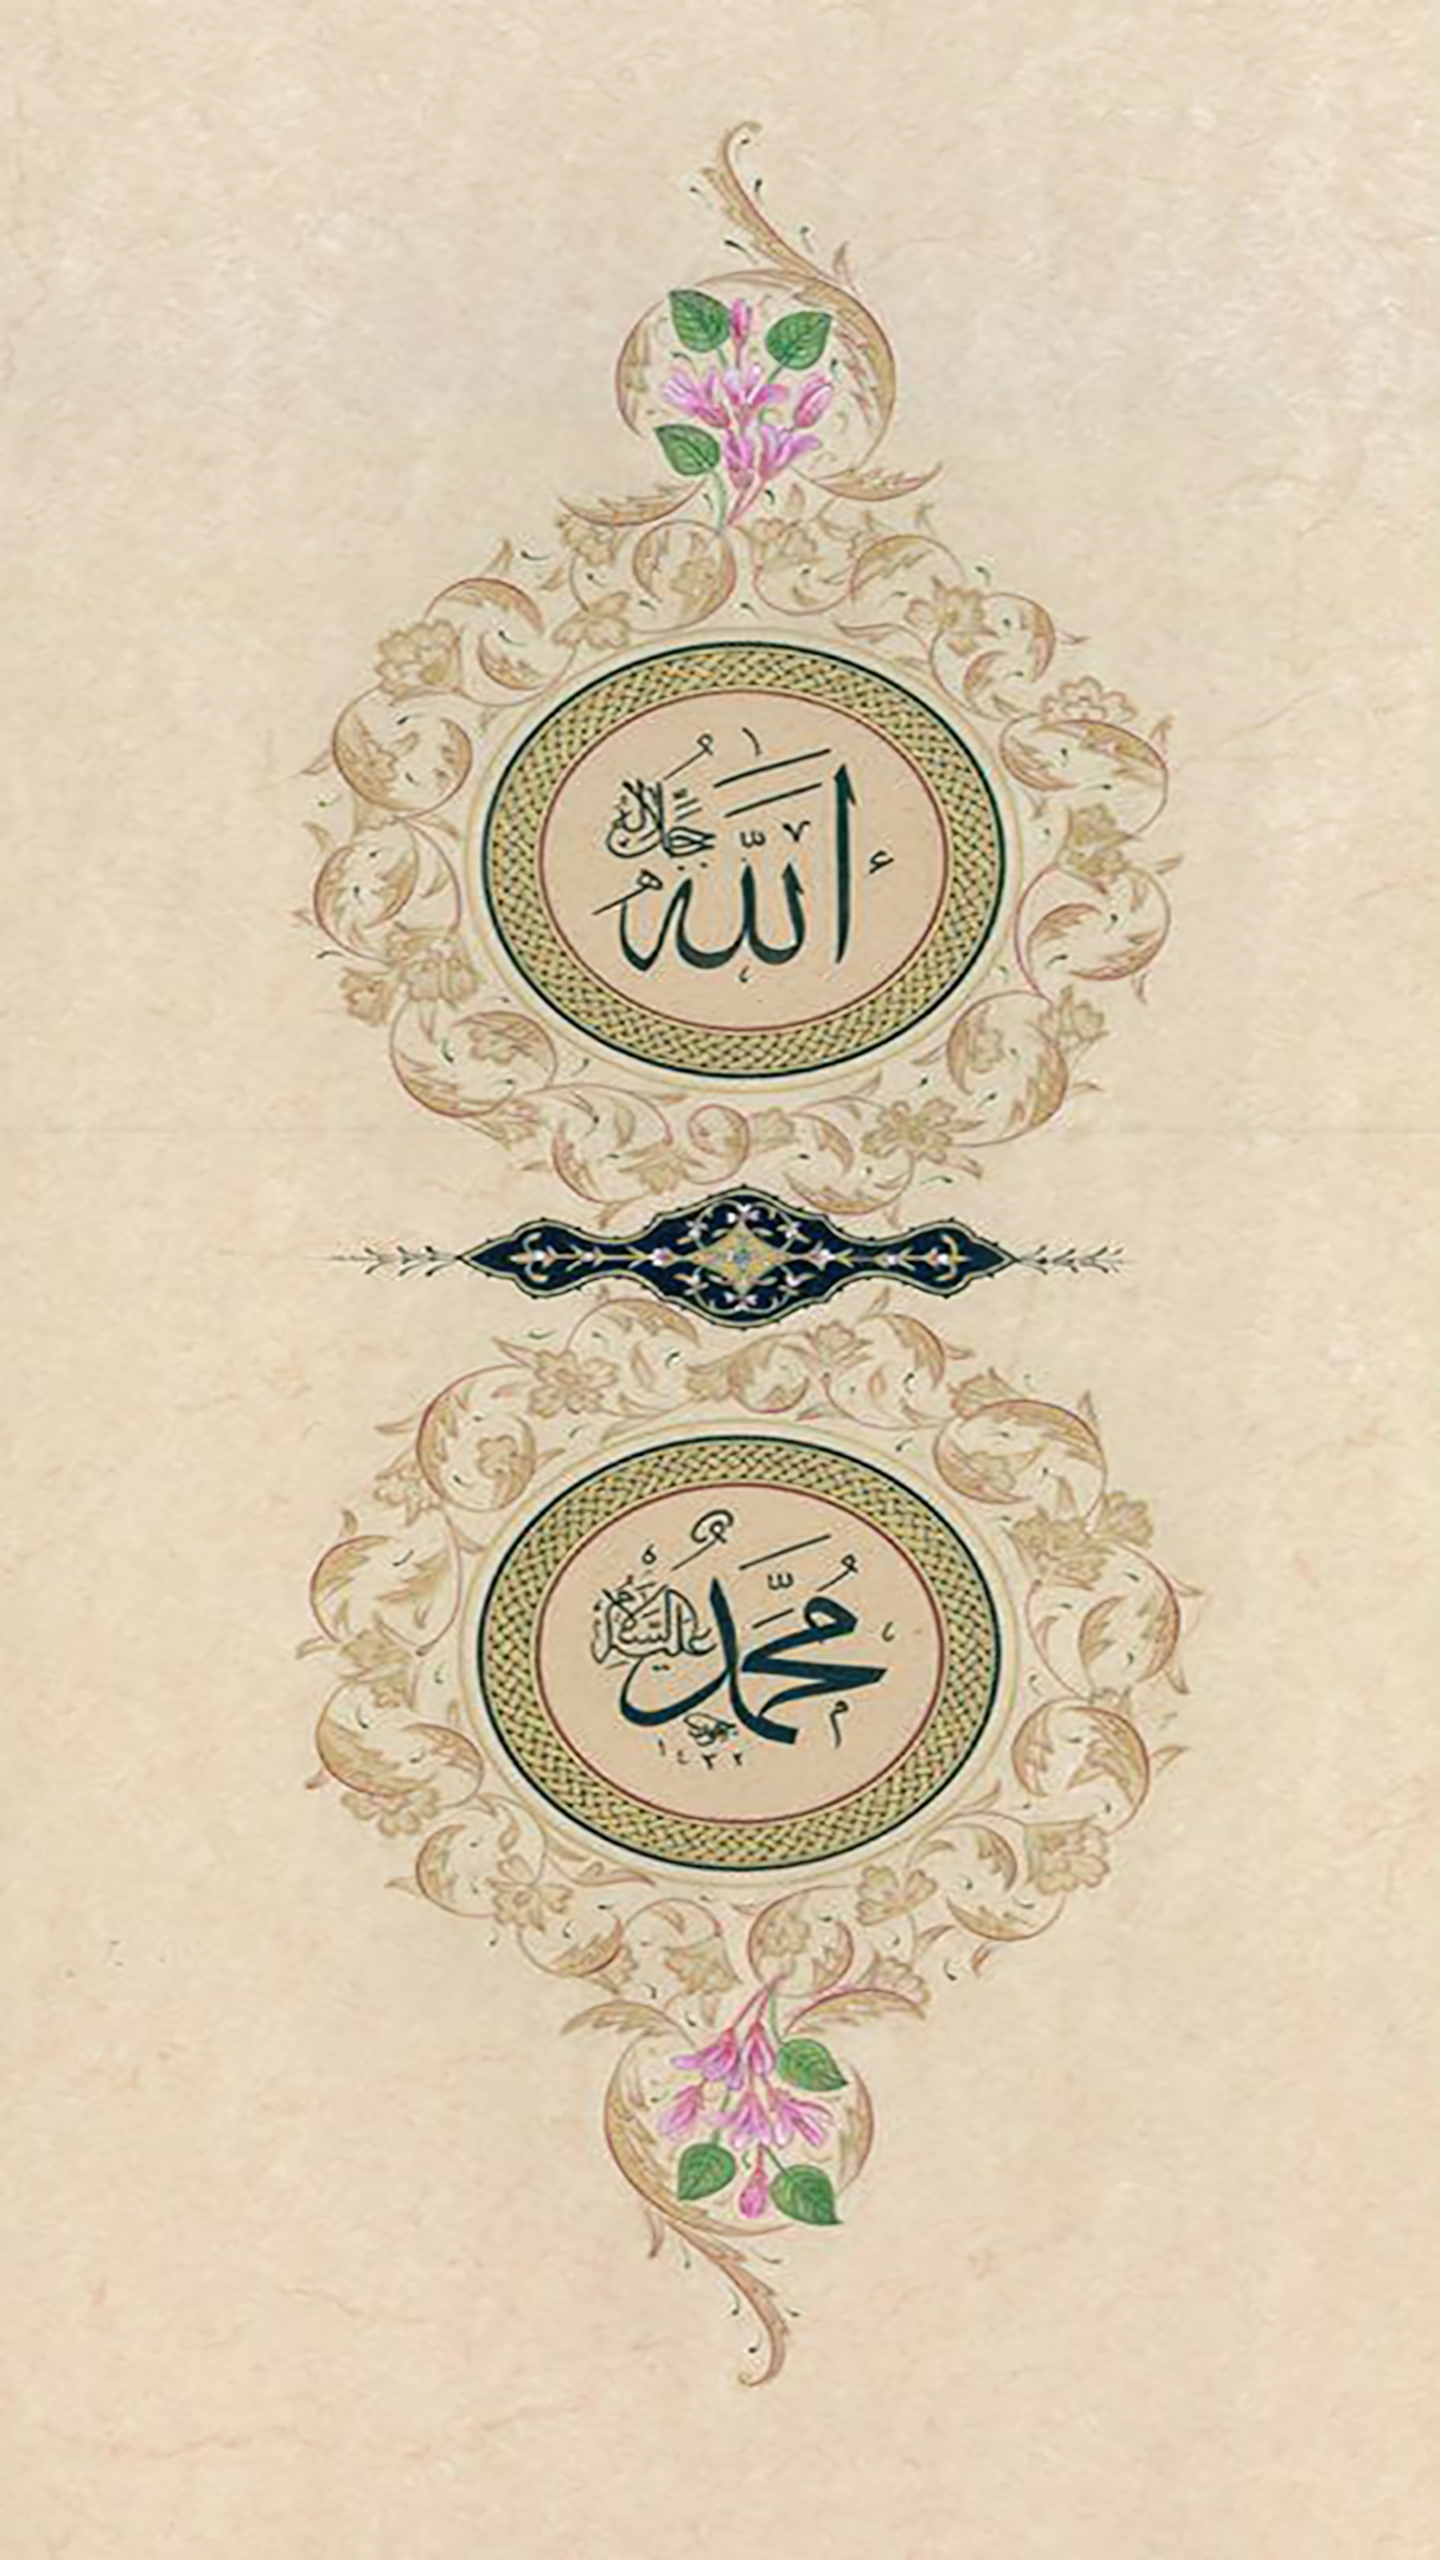 الله جَلَّ جَلَالُهُ
مُحَمَّد عَلَيْهِ السَّلَام
١٤٣٢